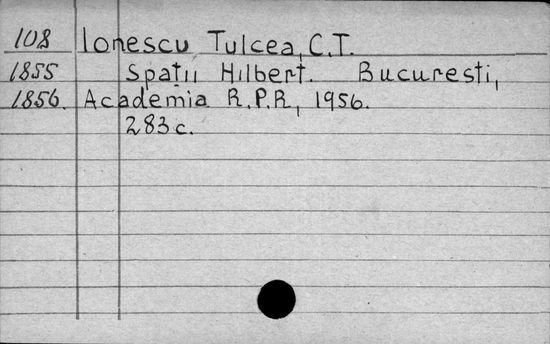 108 Ionescu Tulcea, C.T.
1855 Spații Hilbert. București,
1856. Academia R.P.R., 1956.
283 c.